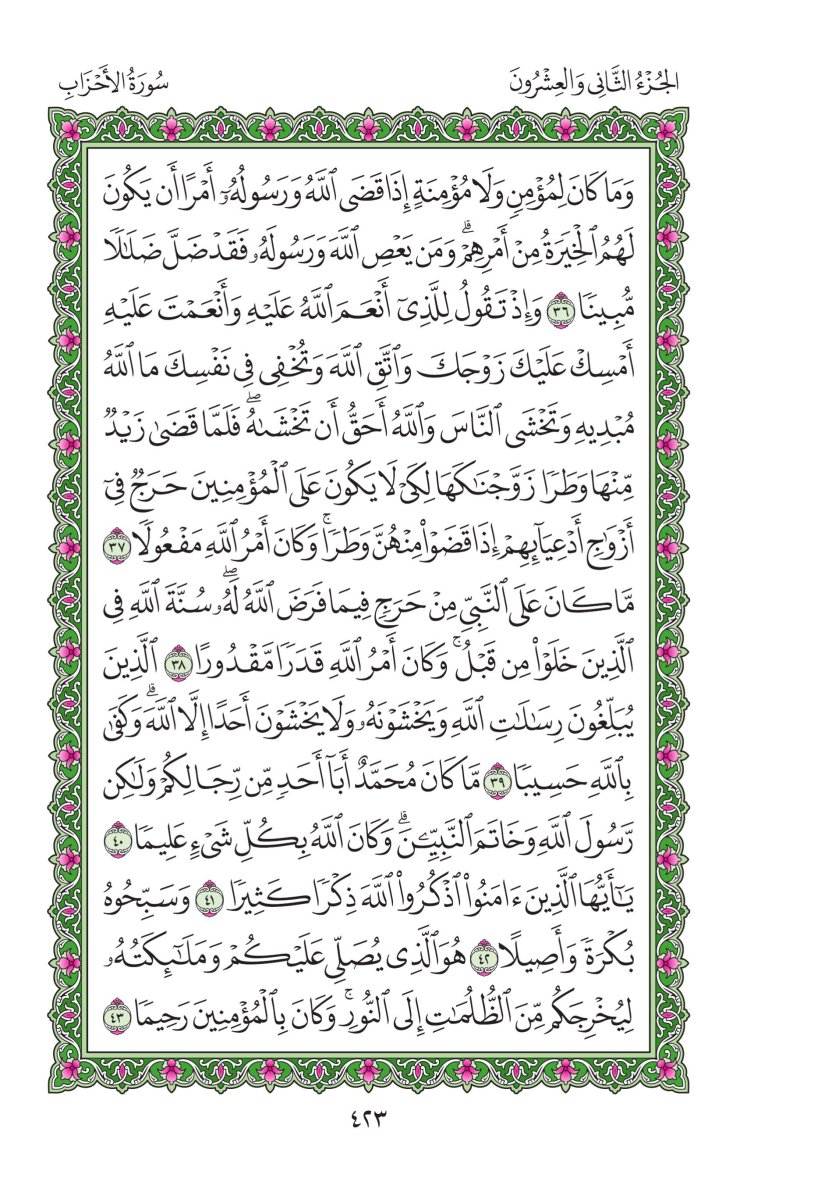 الجُزْءُ الثَّانِي وَالعِشْرُونَ
سُورَةُ الأَحْزَابِ
وَمَا كَانَ لِمُؤْمِنٍ وَلَا مُؤْمِنَةٍ إِذَا قَضَى ٱللَّهُ وَرَسُولُهُۥٓ أَمْرًا أَن يَكُونَ
لَهُمُ ٱلْخِيَرَةُ مِنْ أَمْرِهِمْۗ وَمَن يَعْصِ ٱللَّهَ وَرَسُولَهُۥ فَقَدْ ضَلَّ ضَلَٰلًا
مُّبِينًا ٣٦ وَإِذْ تَقُولُ لِلَّذِىٓ أَنْعَمَ ٱللَّهُ عَلَيْهِ وَأَنْعَمْتَ عَلَيْهِ
أَمْسِكْ عَلَيْكَ زَوْجَكَ وَٱتَّقِ ٱللَّهَ وَتُخْفِى فِى نَفْسِكَ مَا ٱللَّهُ
مُبْدِيهِ وَتَخْشَى ٱلنَّاسَ وَٱللَّهُ أَحَقُّ أَن تَخْشَىٰهُۖ فَلَمَّا قَضَىٰ زَيْدٌ
مِّنْهَا وَطَرًا زَوَّجْنَٰكَهَا لِكَىْ لَا يَكُونَ عَلَى ٱلْمُؤْمِنِينَ حَرَجٌ فِىٓ
أَزْوَٰجِ أَدْعِيَآئِهِمْ إِذَا قَضَوْا۟ مِنْهُنَّ وَطَرًاۚ وَكَانَ أَمْرُ ٱللَّهِ مَفْعُولًا ٣٧
مَّا كَانَ عَلَى ٱلنَّبِىِّ مِنْ حَرَجٍ فِيمَا فَرَضَ ٱللَّهُ لَهُۥۖ سُنَّةَ ٱللَّهِ فِى
ٱلَّذِينَ خَلَوْا۟ مِن قَبْلُۚ وَكَانَ أَمْرُ ٱللَّهِ قَدَرًا مَّقْدُورًا ٣٨ ٱلَّذِينَ
يُبَلِّغُونَ رِسَٰلَٰتِ ٱللَّهِ وَيَخْشَوْنَهُۥ وَلَا يَخْشَوْنَ أَحَدًا إِلَّا ٱللَّهَۗ وَكَفَىٰ
بِٱللَّهِ حَسِيبًا ٣٩ مَّا كَانَ مُحَمَّدٌ أَبَآ أَحَدٍ مِّن رِّجَالِكُمْ وَلَٰكِن
رَّسُولَ ٱللَّهِ وَخَاتَمَ ٱلنَّبِيِّـۧنَۗ وَكَانَ ٱللَّهُ بِكُلِّ شَىْءٍ عَلِيمًا ٤٠
يَٰٓأَيُّهَا ٱلَّذِينَ ءَامَنُوا۟ ٱذْكُرُوا۟ ٱللَّهَ ذِكْرًا كَثِيرًا ٤١ وَسَبِّحُوهُ
بُكْرَةً وَأَصِيلًا ٤٢ هُوَ ٱلَّذِى يُصَلِّى عَلَيْكُمْ وَمَلَٰٓئِكَتُهُۥ
لِيُخْرِجَكُم مِّنَ ٱلظُّلُمَٰتِ إِلَى ٱلنُّورِۚ وَكَانَ بِٱلْمُؤْمِنِينَ رَحِيمًا ٤٣
٤٢٣